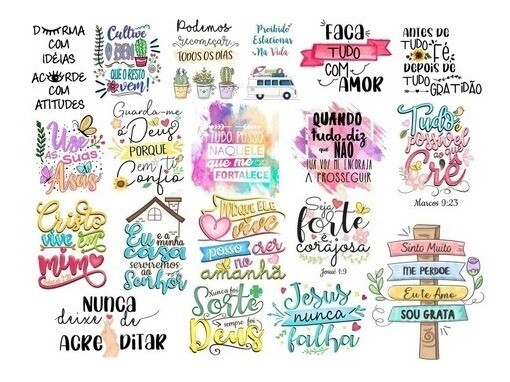 DORMA
COM
IDÉIAS
ACORDE
COM
ATITUDES
Cultive
O BEM
QUE O RESTO
vem!
Podemos
recomeçar
TODOS OS DIAS
Proibido
Estacionar
Na Vida
FAÇA
TUDO
COM
AMOR
ANTES DE
TUDO FÉ
DEPOIS DE
TUDO GRATIDÃO
Use
AS SUAS
Asas
Guarda-me
ó Deus
PORQUE
em ti
Confio
TUDO POSSO
NAQUELE
que me
FORTALECE
QUANDO
tudo diz
que NÃO
TUA VOZ ME ENCORAJA
A PROSSEGUIR
Tudo é
possível
ao que
Crê
Marcos 9:23
Cristo
vive em
mim
Eu
e a minha
casa
serviremos
ao
Senhor
PORQUE ELE
vive
posso crer
no
amanhã
Seja
forte
e
corajosa
Josué 1:9
Sinto Muito
ME PERDOE
Eu te Amo
SOU GRATA
NUNCA
deixe de
ACREDITAR
Nunca foi
Sorte
sempre foi
Deus
Jesus
nunca
falha